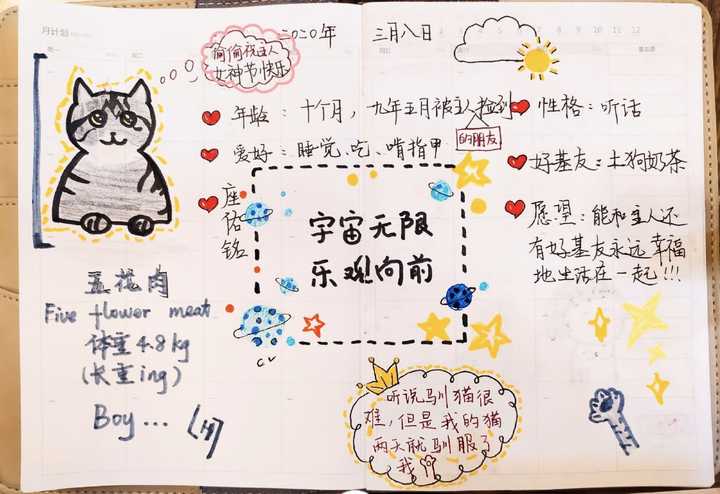 月计划
二〇二〇年 三月八日
偷偷祝主人
女神节快乐
年龄：十个月，九年五月被主人捡到
的朋友
爱好：睡觉、吃、啃指甲
座佑铭
宇宙无限
乐观向前
性格：听话
好基友：土狗奶茶
愿望：能和主人还
有好基友永远幸福
地生活在一起!!!
五花肉
Five flower meat
体重4.8kg
(长重ing)
Boy...
听说驯猫很
难，但是我的猫
两天就驯服了
我